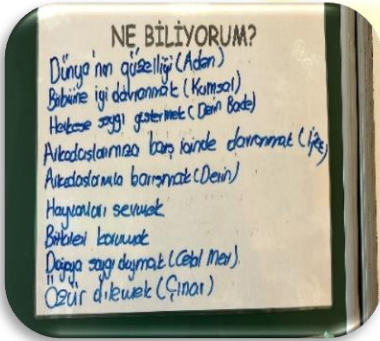 NE BİLİYORUM?
Dünya'nın güzelliği (Aden)
Birbirine iyi davranmak (Kumsal)
Herkese saygı göstermek (Derin Bade)
Arkadaşlarımıza barış içinde davranmak (İpek)
Arkadaşlarımla barışmak (Derin)
Hayvanları sevmek
Bitkileri korumak
Doğaya saygı duymak (Cebil Mer)
Özür dilemek (Çınar)